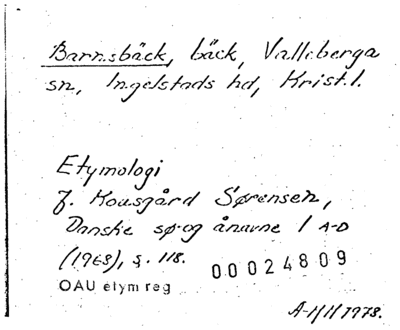 Barnsbäck, bäck, Valleberga
sn, Ingelstads hd, Krist. l.
Etymologi
J. Kousgård Sørensen,
Danske sø- og ånavne 1 A-D
(1968), s. 118.
00024809
OAU etym reg
1978.